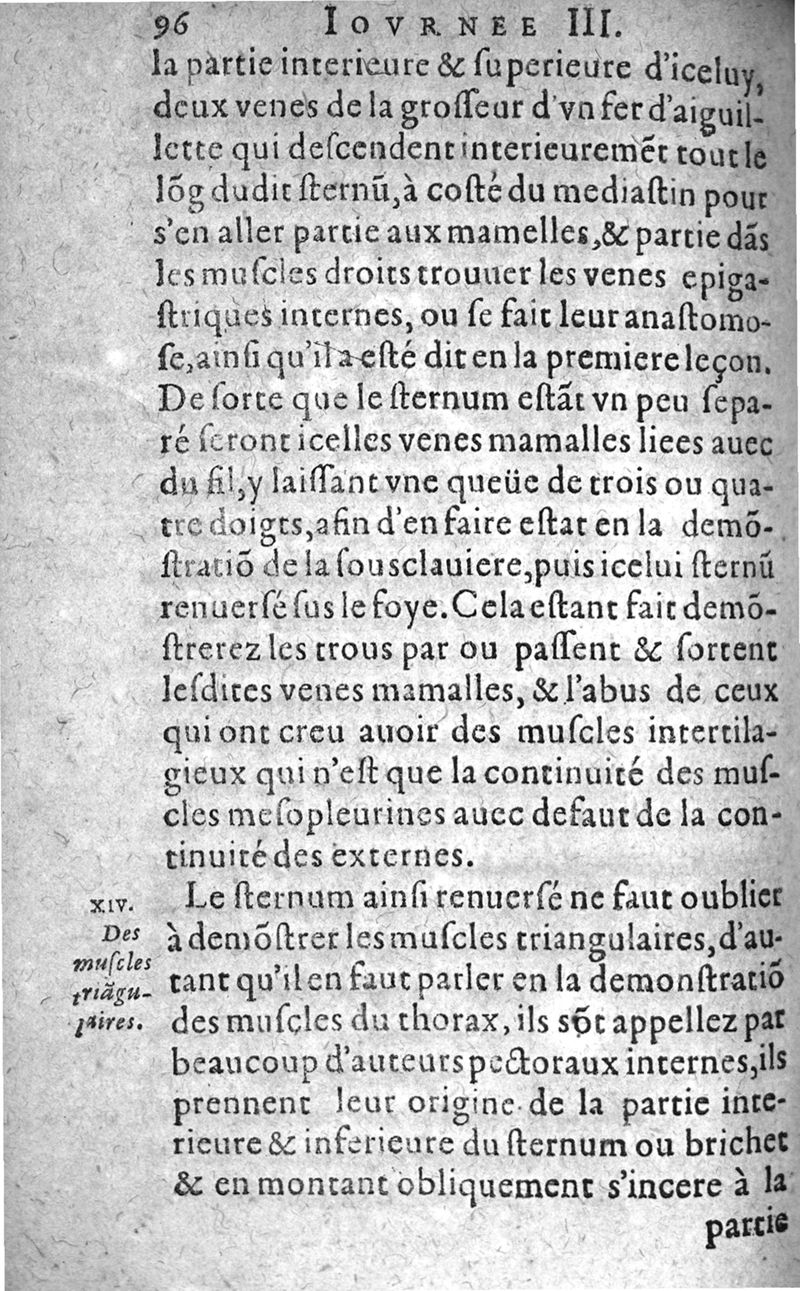 96 IOVRNEE III.
la partie interieure & ſuperieure d'iceluy,
deux venes de la groſſeur d'vn fer d'aiguil-
lette qui deſcendent interieuremẽt tout le
lõg dudit ſternũ, à coſté du mediaſtin pour
s'en aller partie aux mamelles, & partie dãs
les muſcles droits trouuer les venes epiga-
ſtriques internes, ou ſe fait leur anaſtomo-
ſe, ainſi qu'il a eſté dit en la premiere leçon.
De ſorte que le ſternum eſtãt vn peu ſepa-
ré ſeront icelles venes mamalles liees auec
du fil, y laiſſant vne queüe de trois ou qua-
tre doigts, afin d'en faire eſtat en la demõ-
ſtratiõ de la ſousclauiere, puis icelui ſternũ
renuerſé ſus le foye. Cela eſtant fait demõ-
ſtrerez les trous par ou paſſent & ſortent
leſdites venes mamalles, & l'abus de ceux
qui ont creu auoir des muſcles intertila-
gieux qui n'eſt que la continuité des muſ-
cles meſopleurines auec defaut de la con-
tinuité des externes.
XIV.
Des
muſcles
triãgu-
laires.
Le ſternum ainſi renuerſé ne faut oublier
à demõſtrer les muſcles triangulaires, d'au-
tant qu'il en faut parler en la demonſtratiõ
des muſcles du thorax, ils sõt appellez par
beaucoup d'auteurs pectoraux internes, ils
prennent leur origine de la partie inte-
rieure & inferieure du ſternum ou brichet
& en montant obliquement s'incere à la
partie